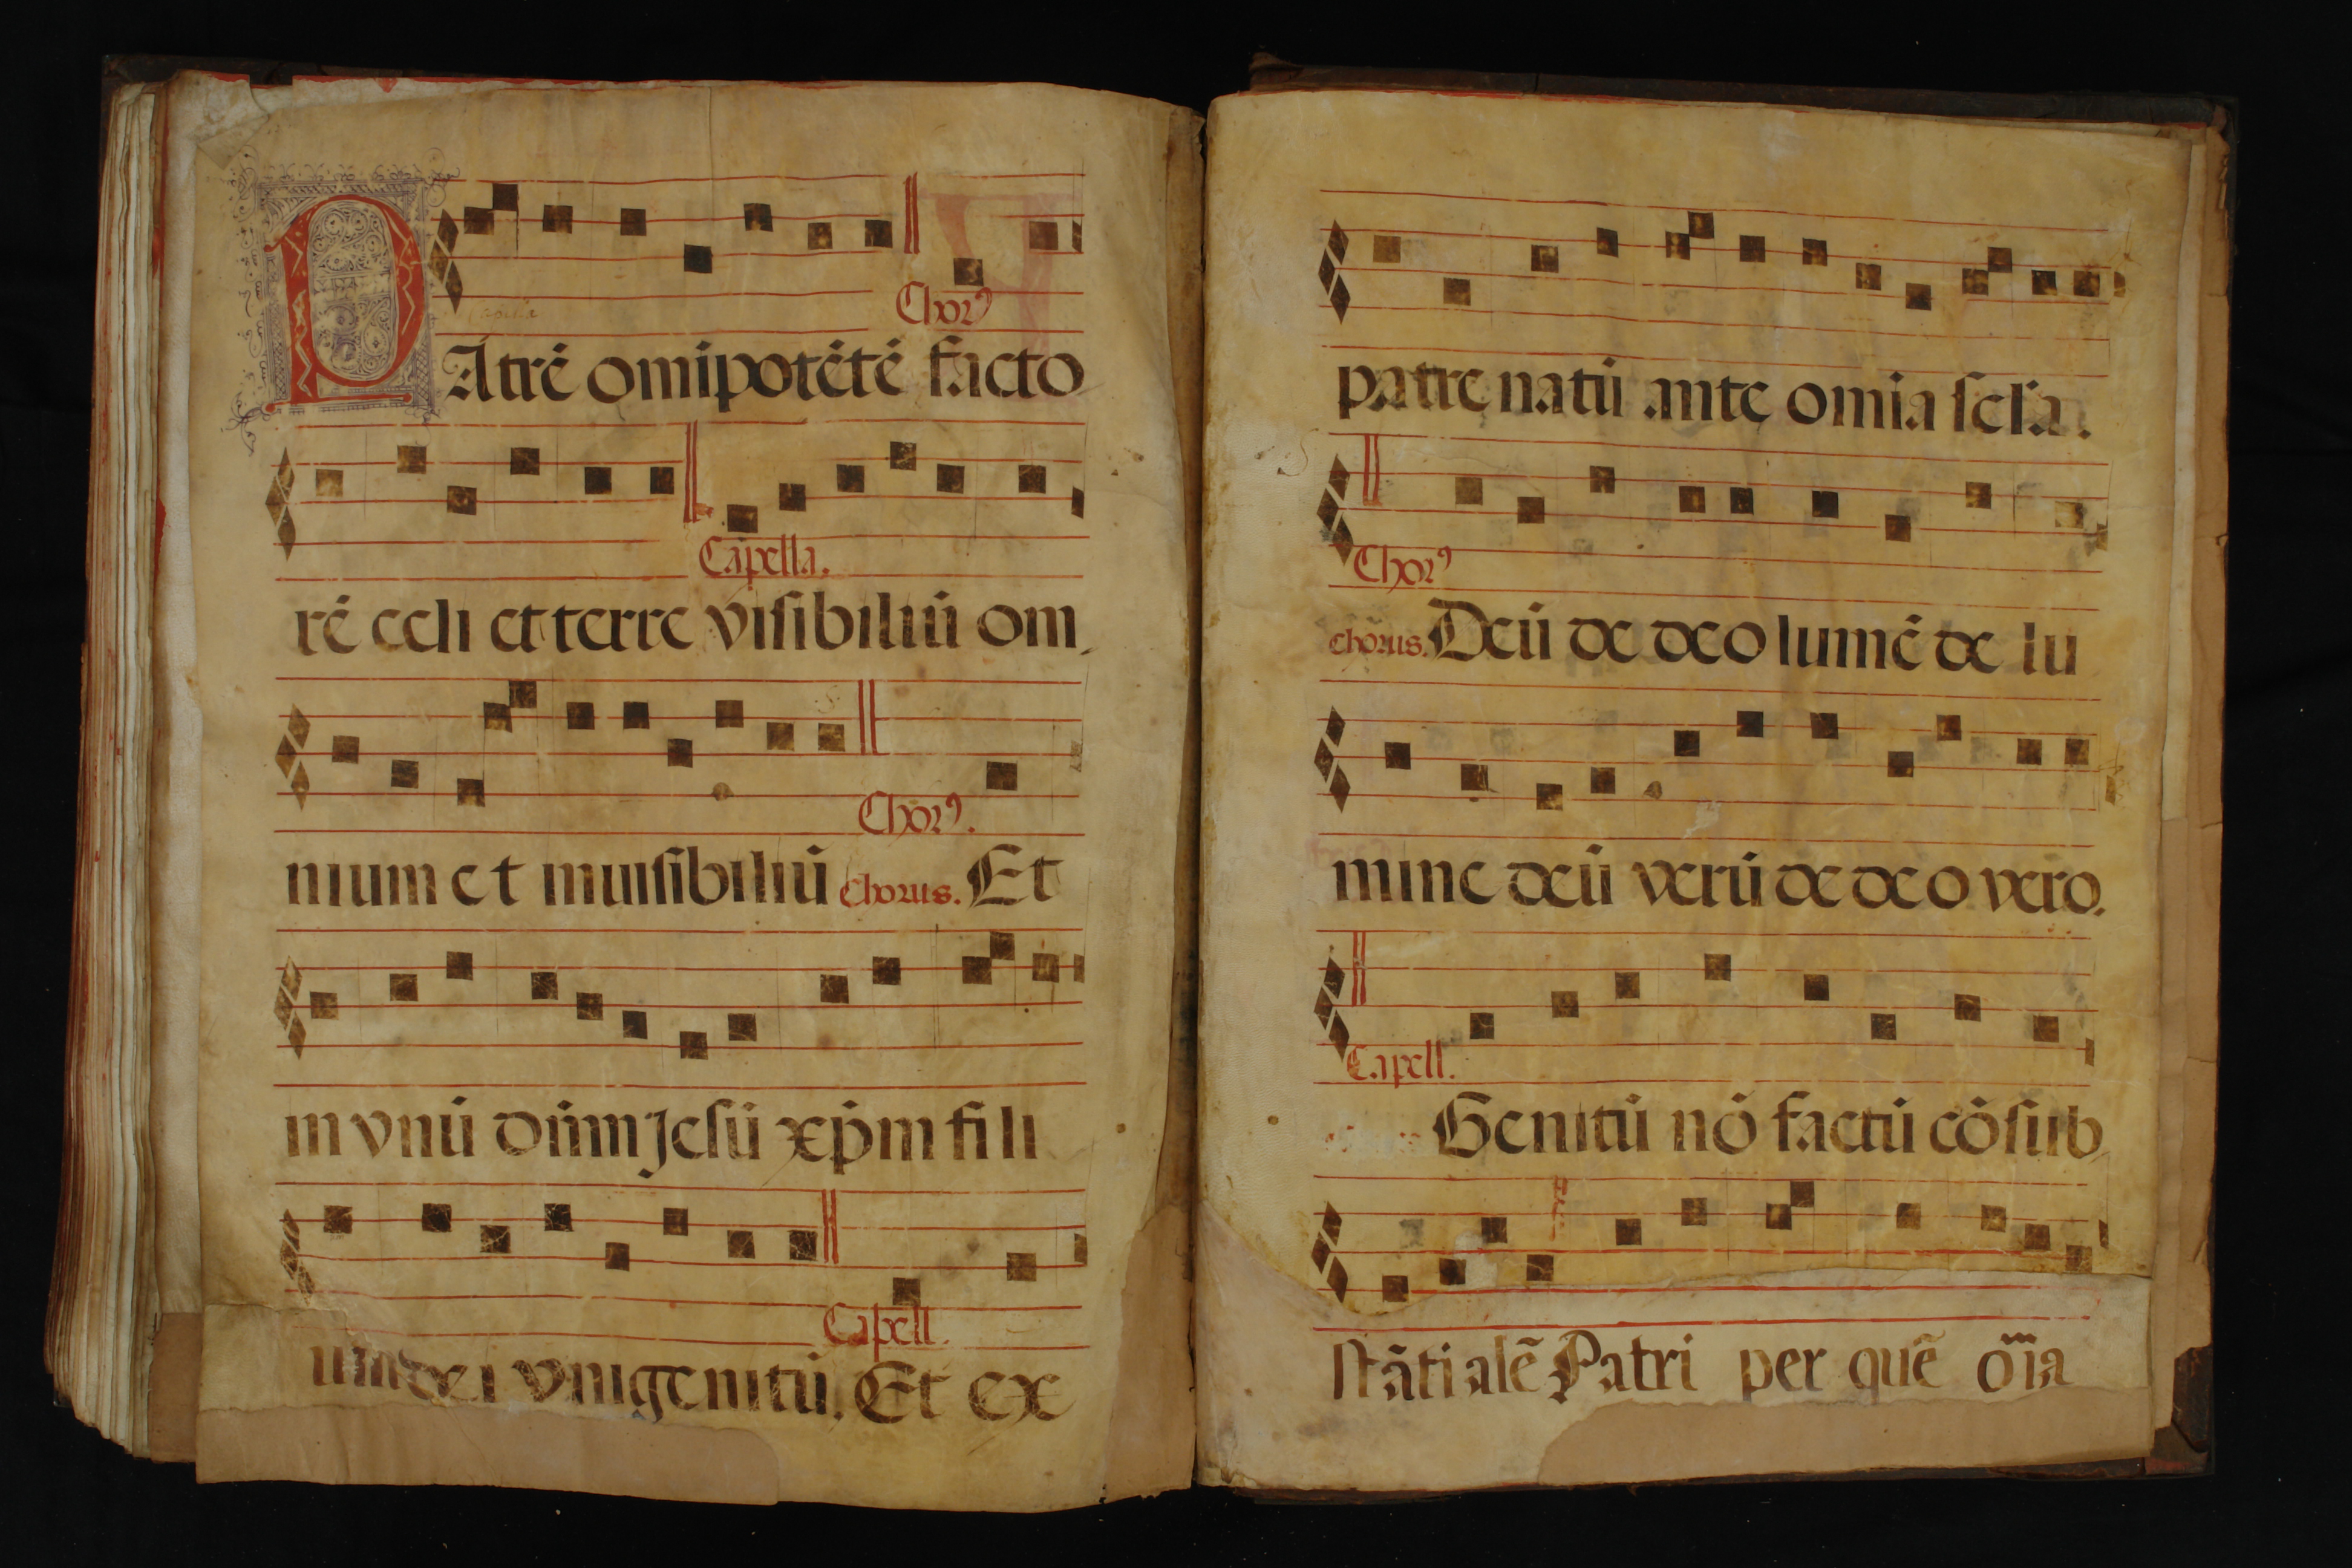 Chorꝯ
PAtrē omĩpotẽtẽ facto
Capella.
rẽ celi et terre visibiliũ om
Chorꝯ.
nium et inuisibiliũ Chorus. Et
in vnũ dñm Jesũ xp̃m fili
Capell.
um dei vnigenitũ. Et ex
patre natũ ante omia secla.
Chorꝯ
chorus. Deũ de deo lumẽ de lu
mine deũ verũ de deo vero.
Capell.
Genitũ nõ factũ cõsub
stãtialẽ Patri per quẽ oĩa